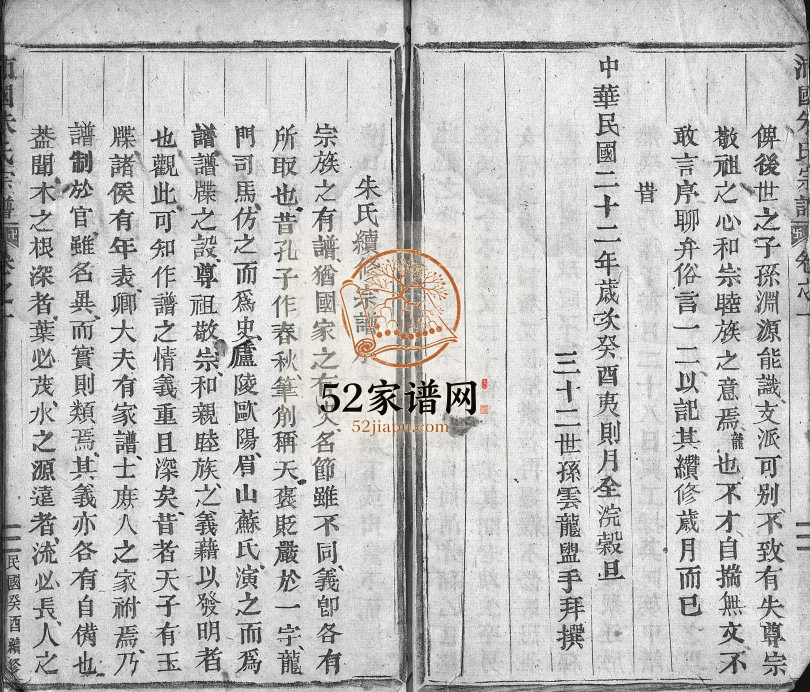 俾後世之子孫淵源能識支派可别不致有失尊宗
敬祖之心和宗睦族之意焉龍也不才自揣無文不
敢言序聊弁俗言一二以記其纘修歲月而已
昔
中華民國二十二年歲次癸酉夷則月全浣穀旦
三十二世孫雲龍盥手拜撰
朱氏續修宗譜
宗族之有譜猶國家之有史名節雖不同義卽各有
所取也昔孔子作春秋筆削稱天褒貶嚴於一字龍
門司馬仿之而爲史廬陵歐陽眉山蘇氏演之而爲
譜譜牒之設尊祖敬宗和親睦族之義藉以發明者
也觀此可知作譜之情義重且深矣昔者天子有玉
牒諸侯有年表卿大夫有家譜士庶人之家祔焉乃
譜制於官雖名異而實則類焉其義亦各有自備也
葢聞木之根深者葉必茂水之源遠者流必長人之
朱氏宗譜
卷之一
民國癸酉續修
52家谱网
52jiapu.com